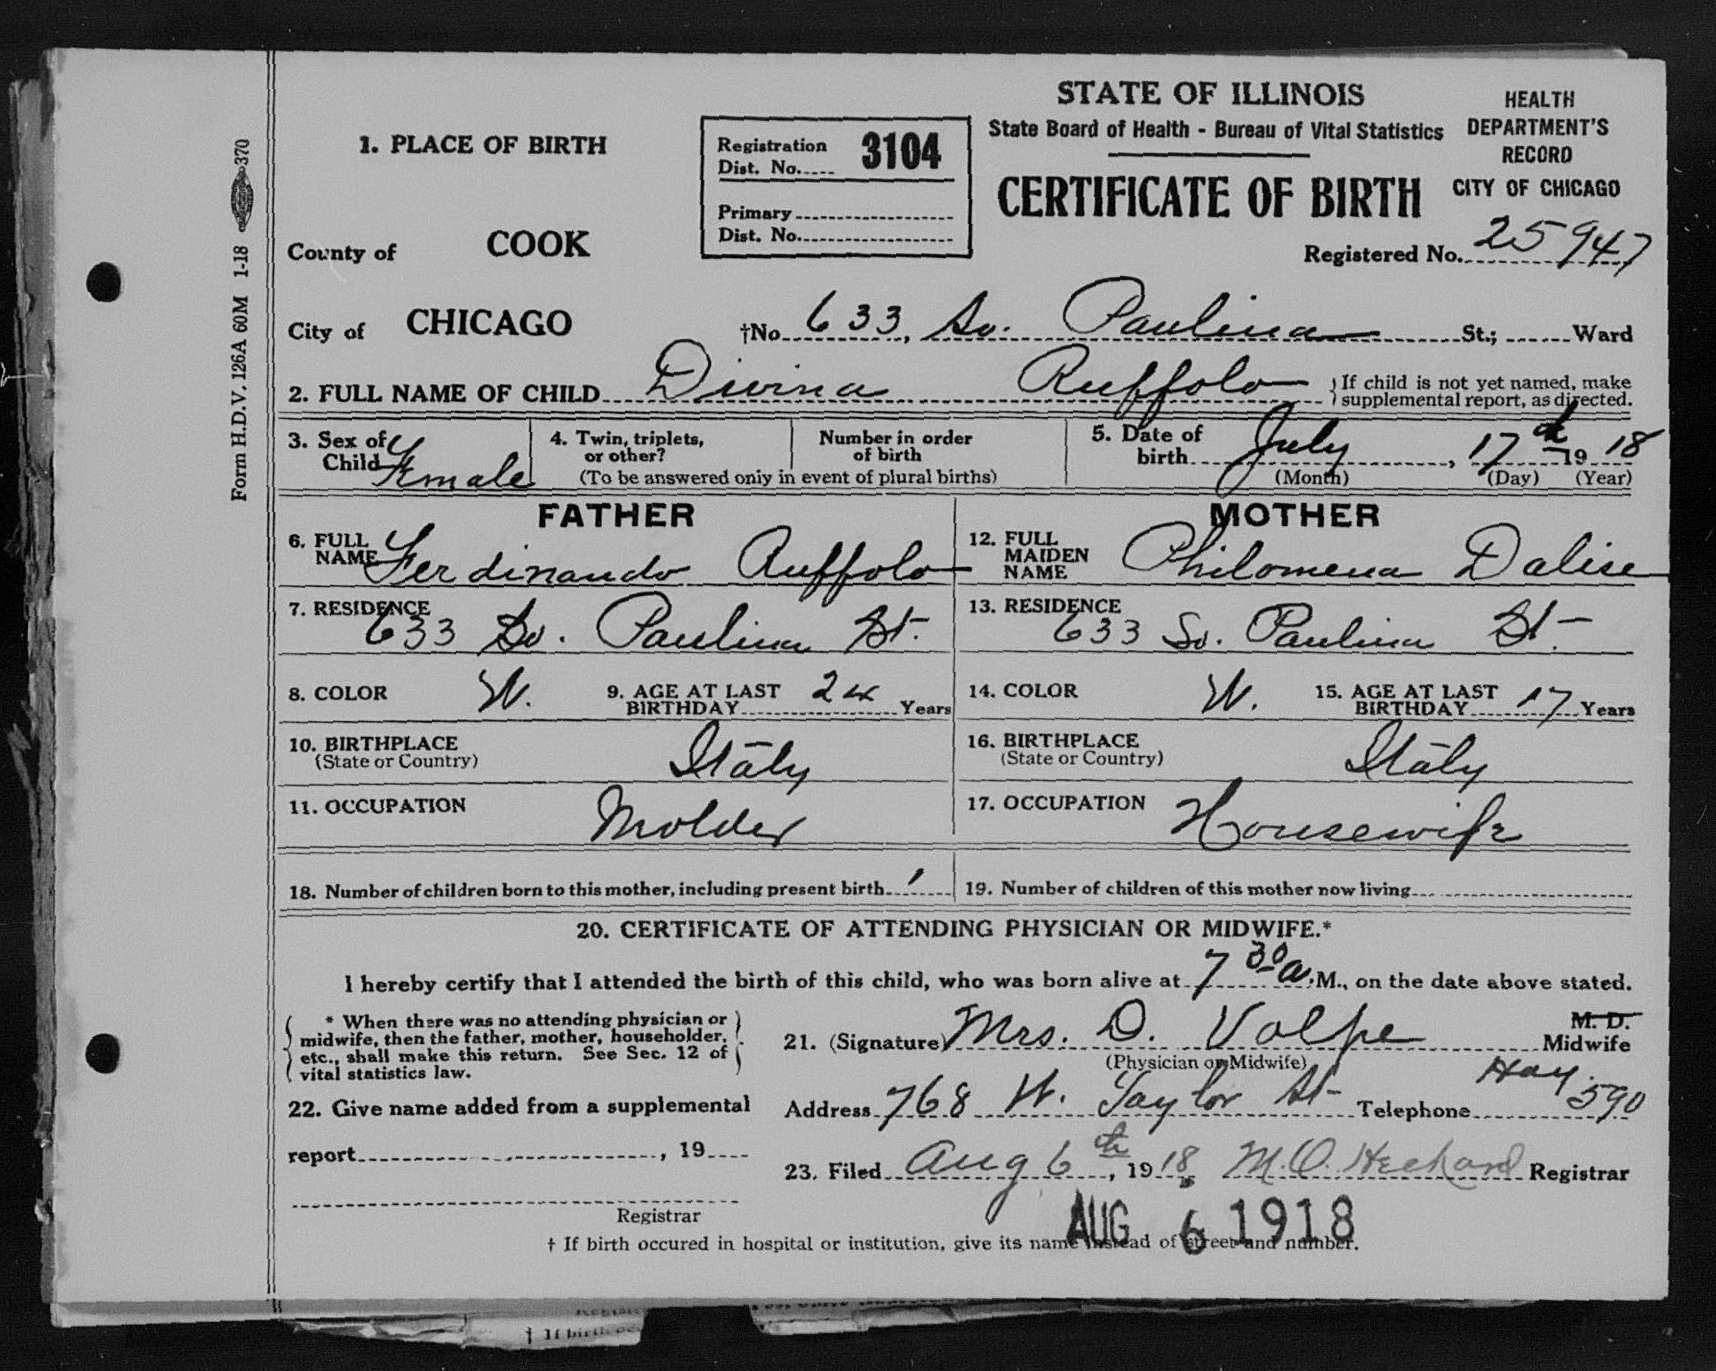 STATE OF ILLINOIS
State Board of Health - Bureau of Vital Statistics
HEALTH DEPARTMENT'S RECORD CITY OF CHICAGO
CERTIFICATE OF BIRTH
Registered No. 25947
1. PLACE OF BIRTH
Registration Dist. No. 3104
Primary Dist. No.
County of COOK
City of CHICAGO †No 633, So. Paulina St.; Ward
2. FULL NAME OF CHILD Divina Ruffolo
If child is not yet named, make supplemental report, as directed.
3. Sex of Child Female
4. Twin, triplets, or other?
Number in order of birth
(To be answered only in event of plural births)
5. Date of birth July, 17th 1918
(Month) (Day) (Year)
FATHER
6. FULL NAME Ferdinando Ruffolo
7. RESIDENCE 633 So. Paulina St.
8. COLOR W. 9. AGE AT LAST BIRTHDAY 24 Years
10. BIRTHPLACE (State or Country) Italy
11. OCCUPATION Molder
MOTHER
12. FULL MAIDEN NAME Philomena Dalise
13. RESIDENCE 633 So. Paulina St.
14. COLOR W. 15. AGE AT LAST BIRTHDAY 17 Years
16. BIRTHPLACE (State or Country) Italy
17. OCCUPATION Housewife
18. Number of children born to this mother, including present birth 1
19. Number of children of this mother now living
20. CERTIFICATE OF ATTENDING PHYSICIAN OR MIDWIFE.*
I hereby certify that I attended the birth of this child, who was born alive at 7 30 a.M., on the date above stated.
* When there was no attending physician or
midwife, then the father, mother, householder,
etc., shall make this return. See Sec. 12 of
vital statistics law.
21. (Signature) Mrs. D. Volpe M. D. Midwife
(Physician or Midwife)
Address 768 W. Taylor St Telephone Hay. 590
22. Give name added from a supplemental
report, 19
Registrar
23. Filed Aug 6th, 1918 M.O. Heckard Registrar
AUG 6 1918
† If birth occured in hospital or institution, give its name instead of street and number.
Form H.D.V. 126A 60M 1-18 370
† If birth